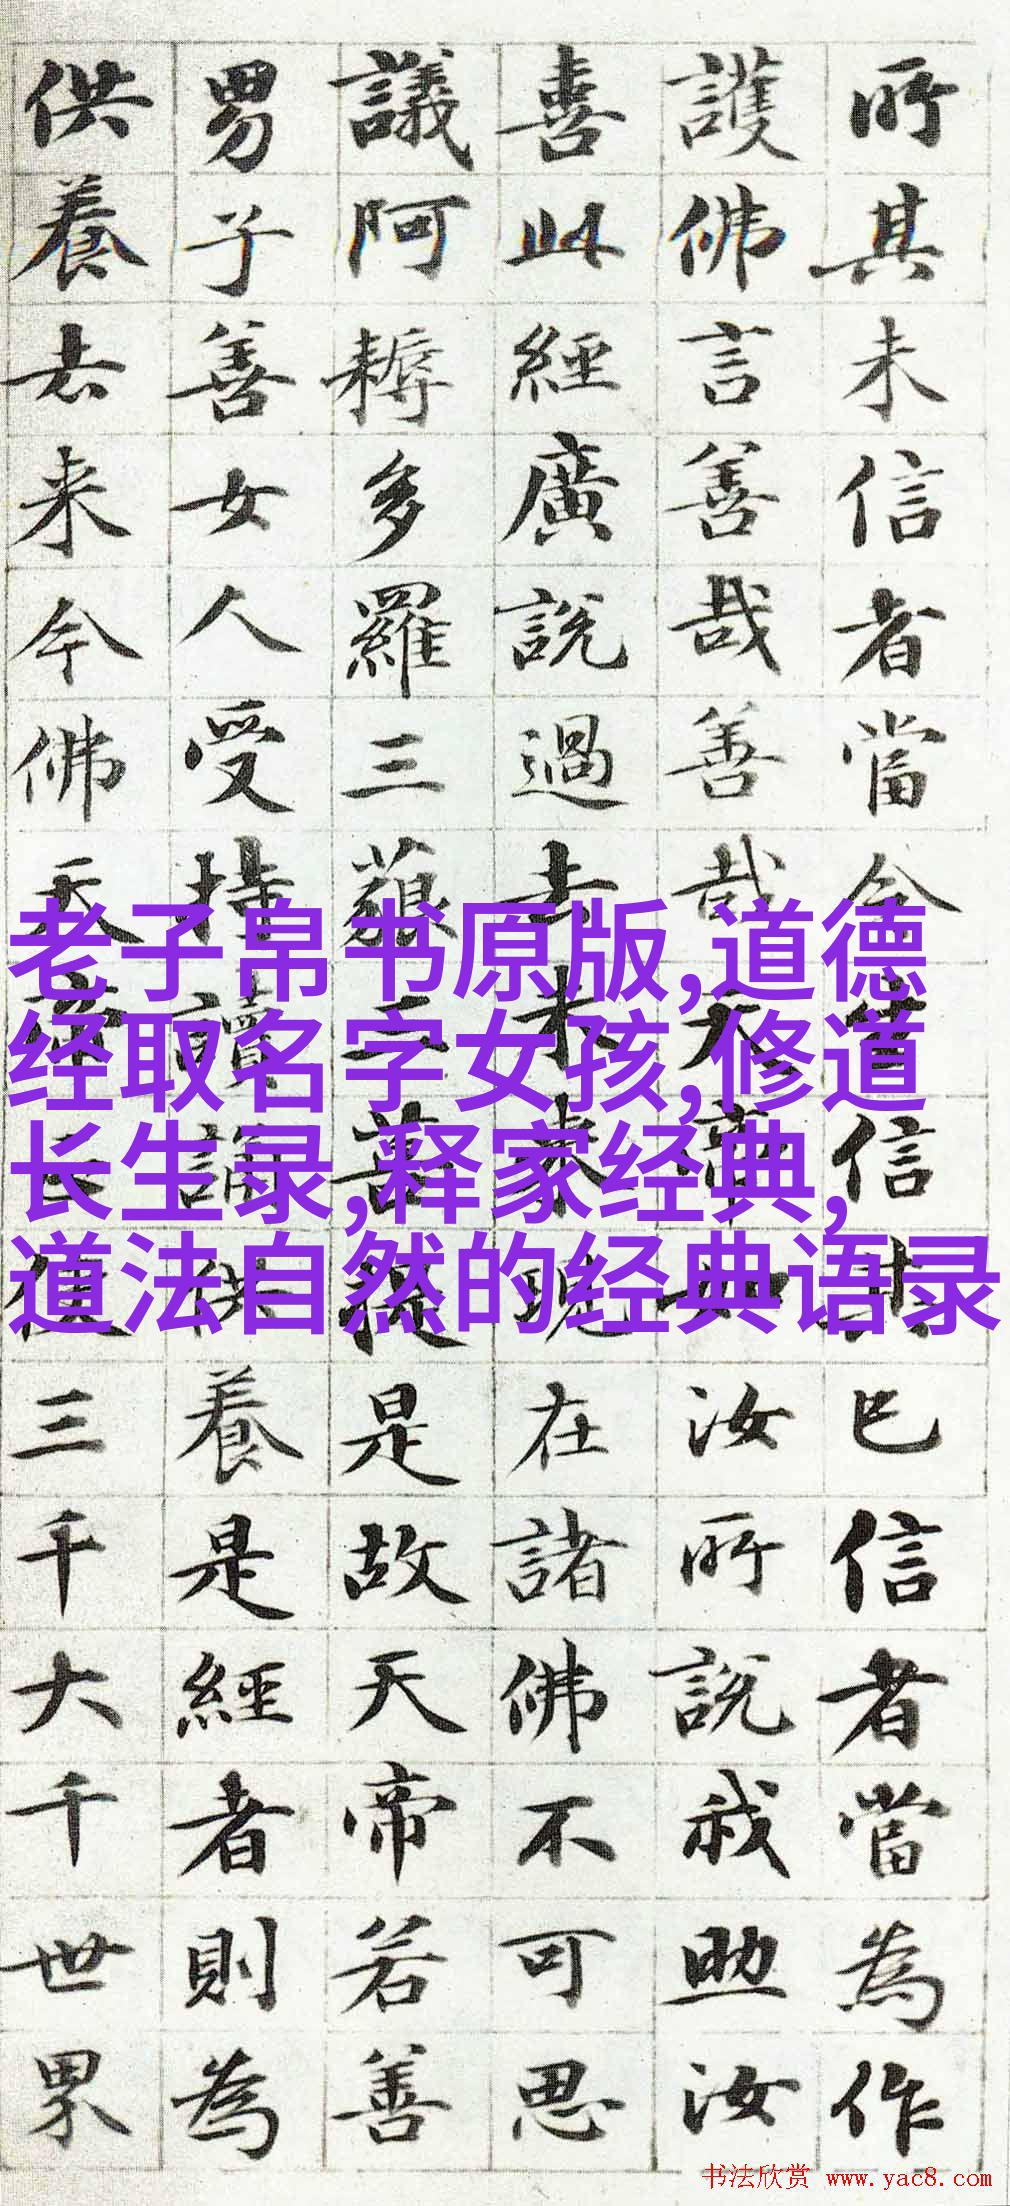 所其未信者當令生信其已信者當為作
護佛言善哉善哉天帝如汝所說我助汝
喜此經廣說過去未來現在諸佛不可思
議阿耨多羅三藐三菩提是故天帝若善
男子善女人受持讀誦供養是經者則為
供養去来今佛天帝正使三千大千世界
老子帛书原版,道德
经取名字女孩,修道
长生录,释家经典,
道法自然的经典语录
书法欣赏 www.yac8.com